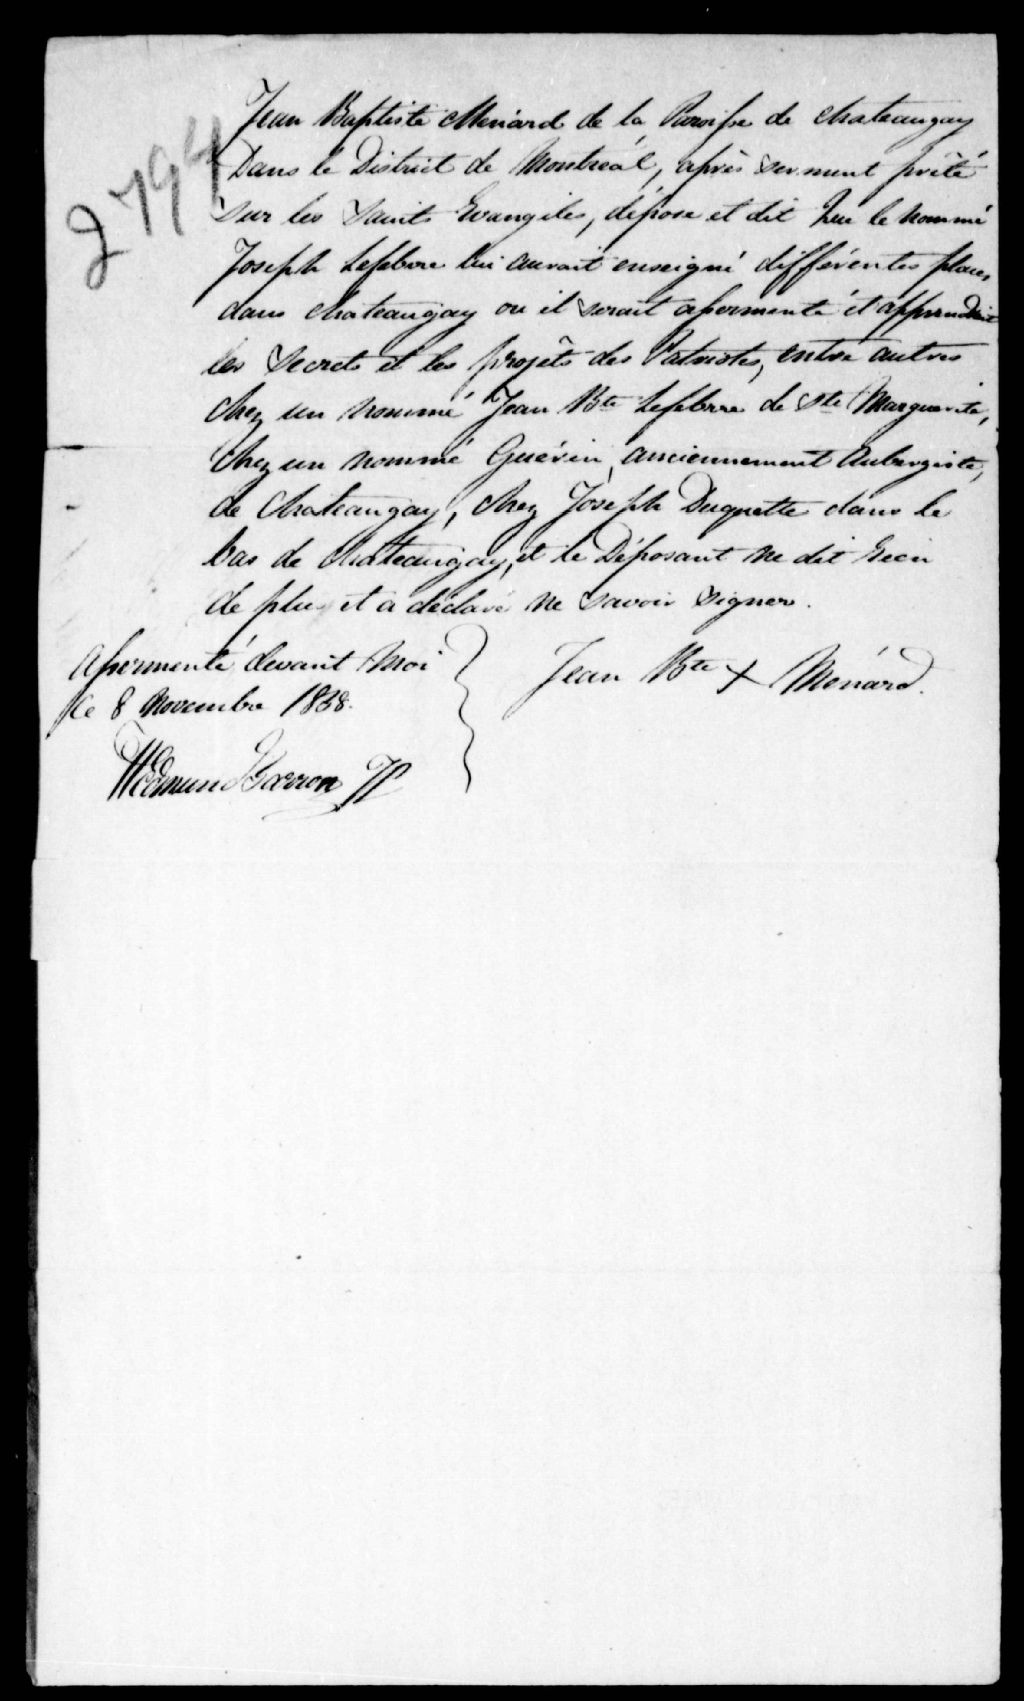 2794
Jean Baptiste Menard de la Paroisse de Chateaugay
Dans le District de Montréal, après serment prêté
sur les Saints Evangiles, dépose et dit Que le nommé
Joseph Lefebvre lui aurait enseigné différentes places
dans Chateaugay ou il serait assermenté et apprendrait
les Secrets et les projêts des Patriotes, entre autres
chez un nommé Jean Bte Lefebvre de Ste Marguerite,
chez un nommé Guérin, anciennement Aubergiste,
de Chateaugay, chez Joseph Duquette dans le
bas de Chateaugay, et le Déposant ne dit Rien
de plus et a déclaré ne savoir signer.
Assermenté devant Moi
Ce 8 Novembre 1838.
Jean Bte + Menárd.
Barron JP